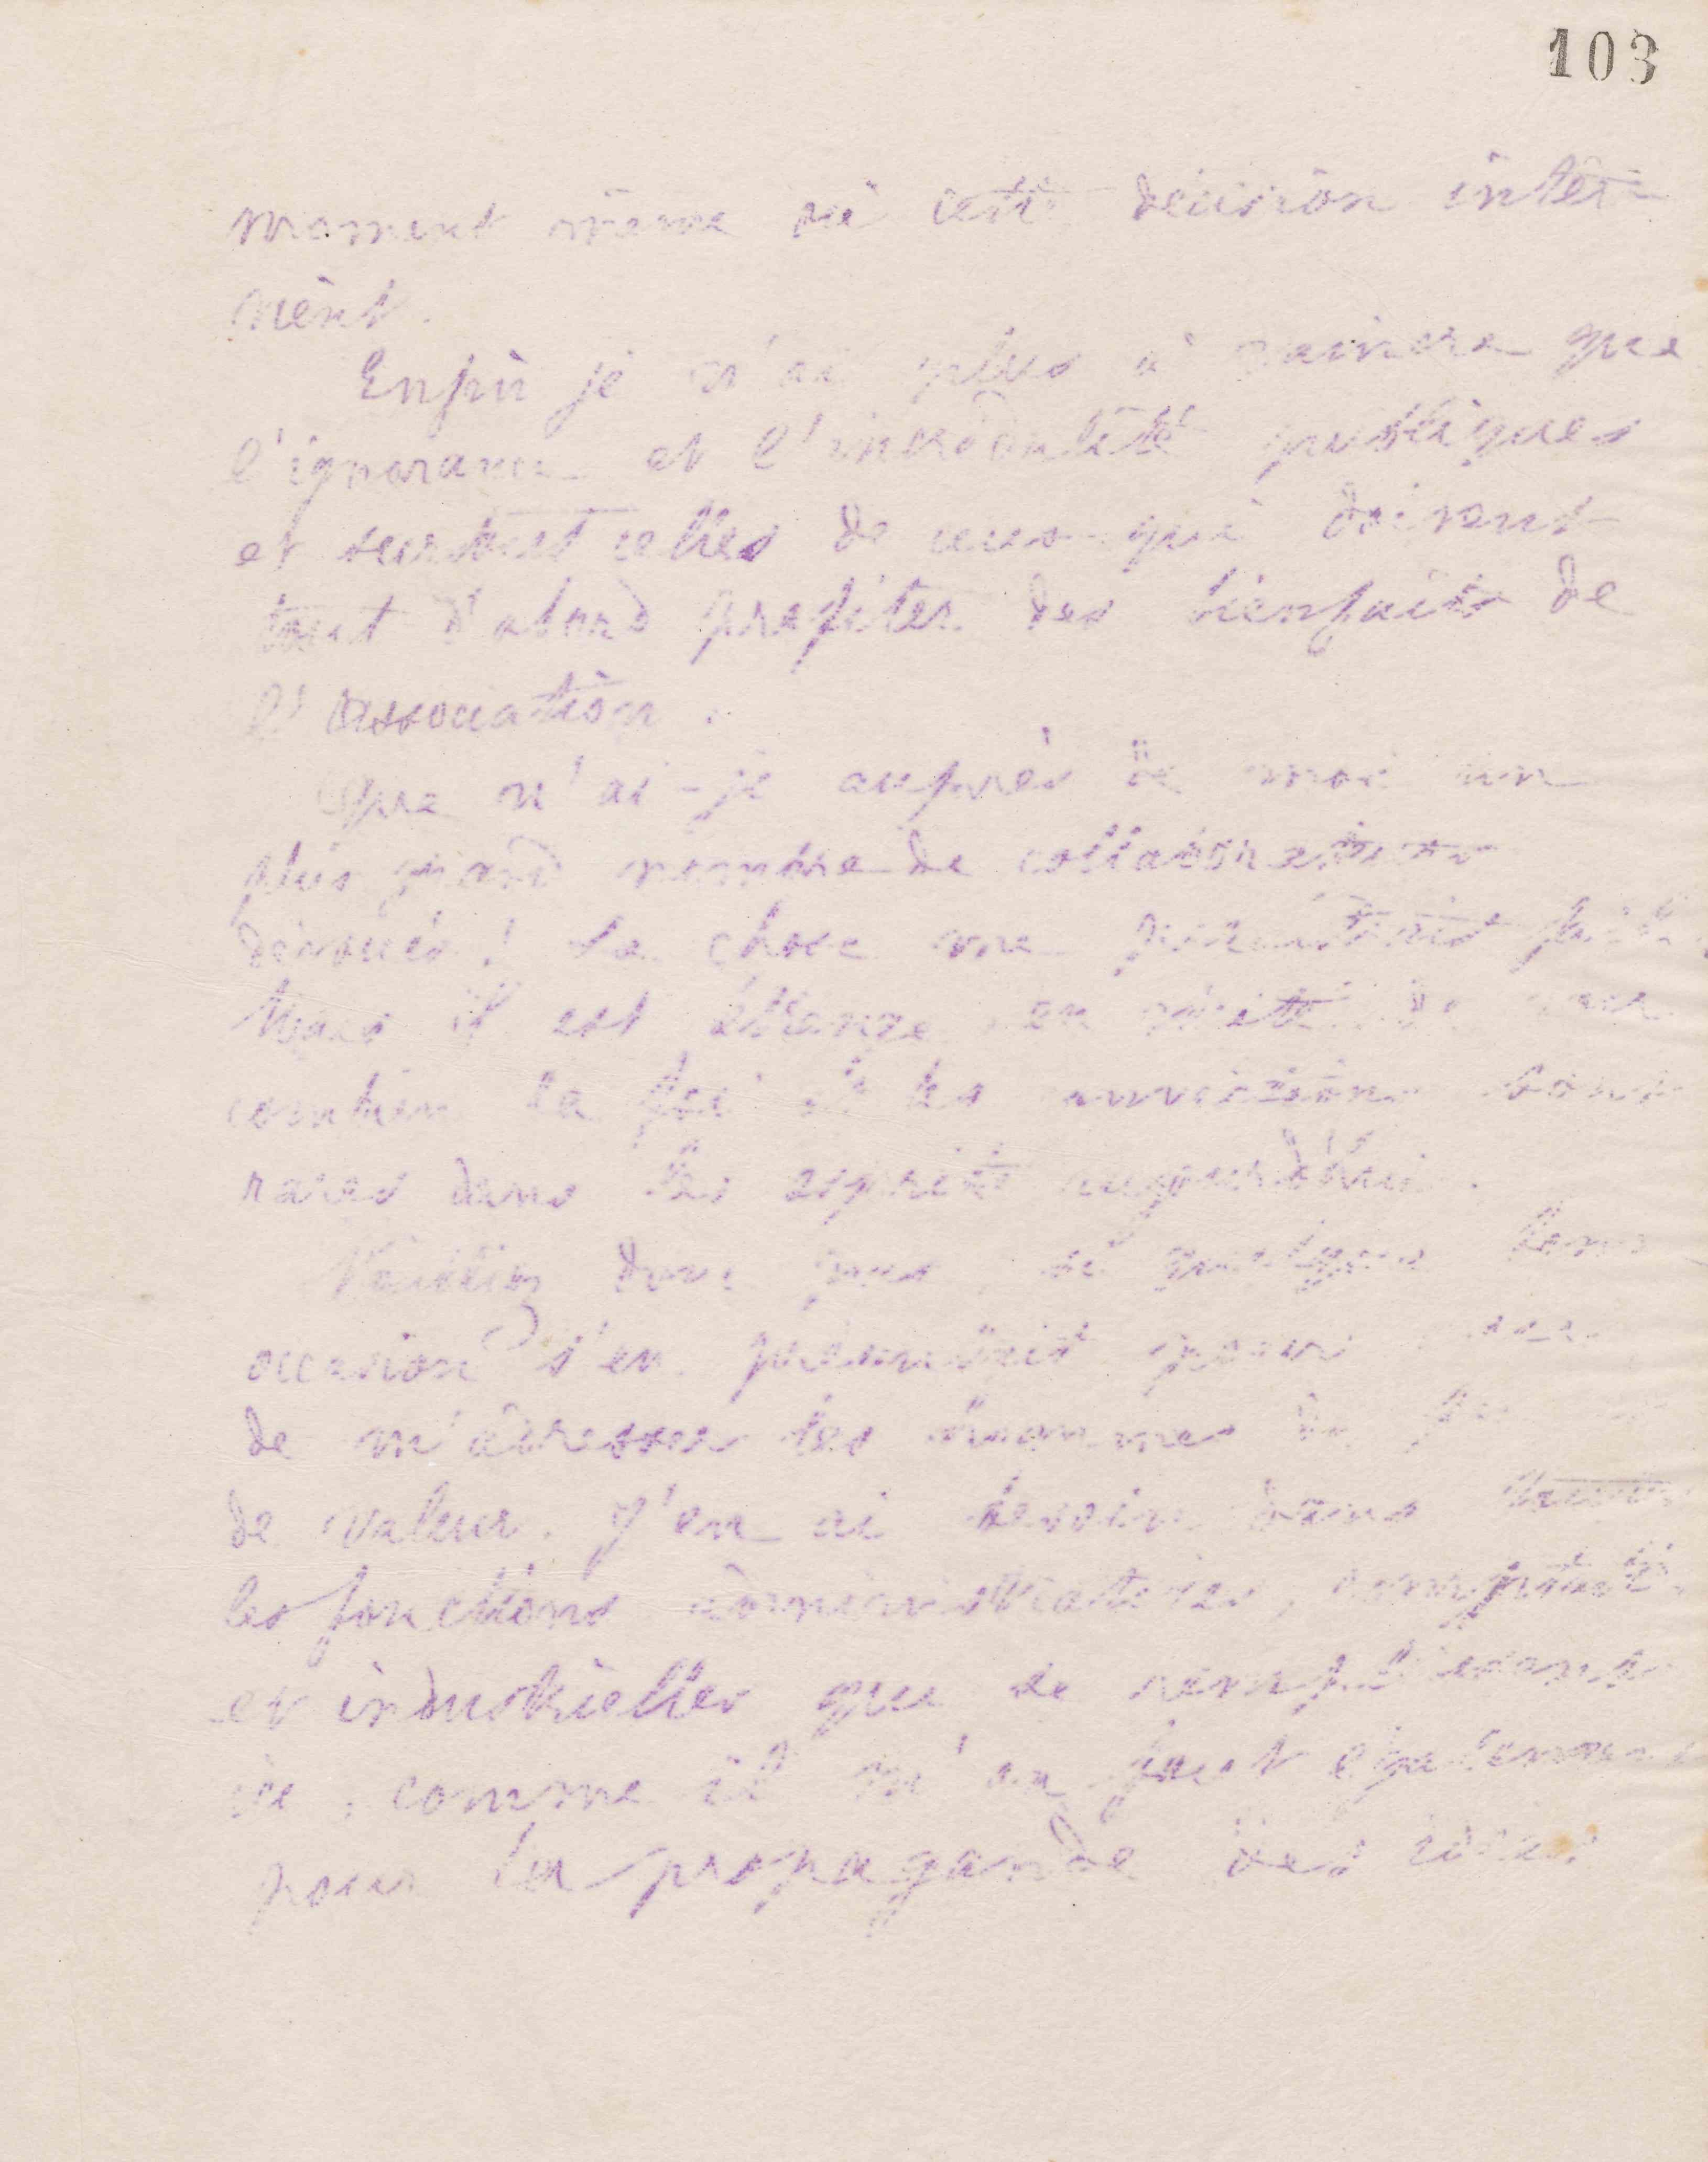 103
moment même où cette décision inter-
vient.
Enfin je n'ai plus à vaincre que
l'ignorance et l'incrédulité publiques
et surtout celles de ceux qui doivent
tout d'abord profiter des bienfaits de
l'association.
Que n'ai-je auprès de moi un
plus grand nombre de collaborateurs
dévoués! La chose me
Mais il est étrange en de
combien la foi et les convictions sont
rares dans les esprits aujourd'hui.
Veuillez donc si quelque bonne
occasion s'en présentait pour
de m'adresser des hommes de
de valeur. J'en ai besoin dans toutes
les fonctions administratives,
et industrielles que je remplis
ici, comme il m'en faut également
pour la propagande des idées